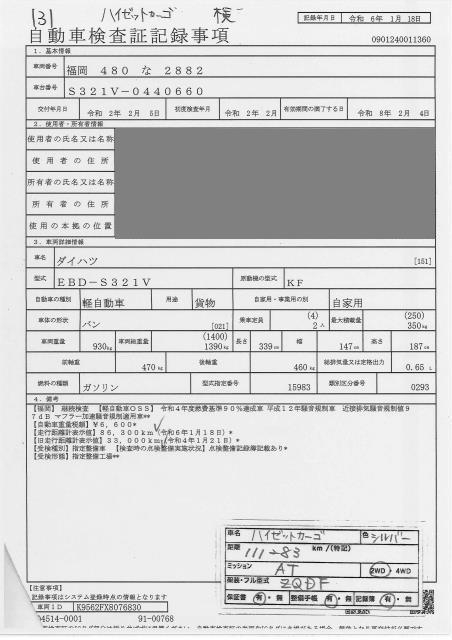 131 ハイゼットカーゴ 様
記録年月日 令和 6年 1月 18日
自動車検査証記録事項
0901240011360
1. 基本情報
車両番号 福岡 480 な 2882
車台番号 S321V-0440660
交付年月日 令和 2年 2月 5日 初度検査年月 令和 2年 2月 有効期間の満了する日 令和 8年 2月 4日
2. 使用者・所有者情報
使用者の氏名又は名称
使用者の住所
所有者の氏名又は名称
所有者の住所
使用の本拠の位置
3. 車両詳細情報
車名 ダイハツ [151]
型式 EBD-S321V 原動機の型式 KF
自動車の種別 軽自動車 用途 貨物 自家用・事業用の別 自家用
車体の形状 バン [021] 乗車定員 (4) 2人 最大積載量 (250) 350kg
車両重量 930kg 車両総重量 (1400) 1390kg 長さ 339cm 幅 147cm 高さ 187cm
前軸重 470kg 後軸重 460kg 総排気量又は定格出力 0.65 L
燃料の種類 ガソリン 型式指定番号 15983 類別区分番号 0293
4. 備考
【福岡】 継続検査 【軽自動車OSS】 令和4年度燃費基準90%達成車 平成12年騒音規制車 近接排気騒音規制値9
7dB マフラー加速騒音規制適用車**
【自動車重量税額】¥6,600*
【走行距離計表示値】86,300km(令和6年1月18日)*
【旧走行距離計表示値】33,000km(令和4年1月21日)*
【受検種別】指定整備車 【検査時の点検整備実施状況】点検整備記録簿記載あり*
【受検形態】指定整備工場**
車名 ハイゼットカーゴ 色 シルバー
距離 111283 km/(特記)
ミッション AT 2WD 4WD
類装・フル型式 ZQDF
保証書 有・無 整備手帳 有・無 記録簿 有・無
【注意事項】
記録事項はシステム登録時点の情報となります
車両ID K9562FX8076830
04514-0001 91-00768